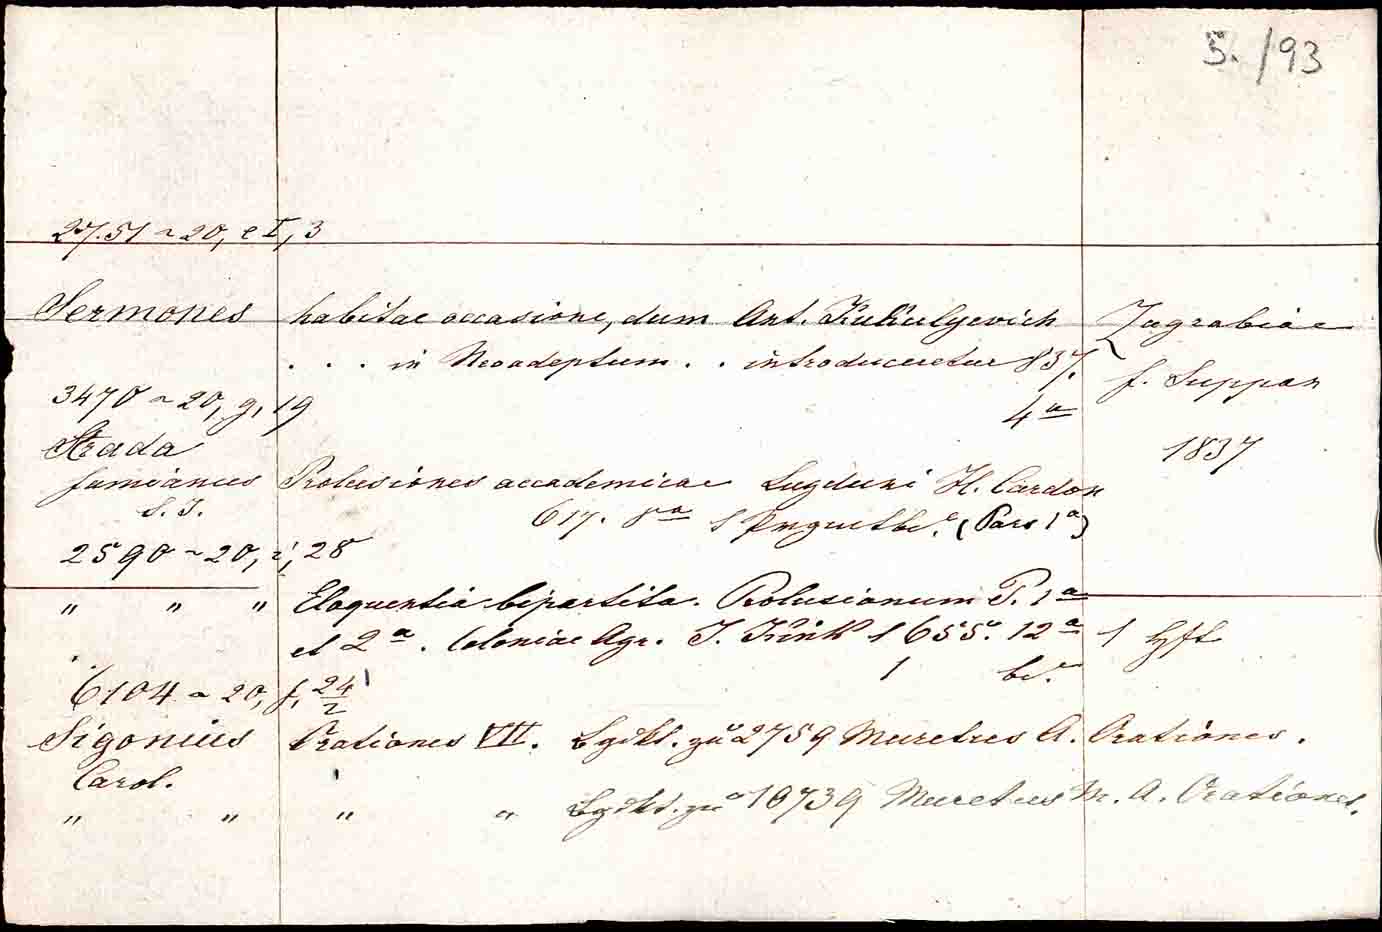 5. /93
27.51 ~ 20, e I, 3
Sermones habitae occasione, dum Ant. Kukulyevich Zagrabiae
. . . in Neoadeptum . . introduceretur 837. f. Suppan
3470 ~ 20, g, 19 4a
Strada 1837
famianus Prolusiones accademicae Lugduni H. Cardon
S. J. 617. 8a (Pars 1a)
2590 ~ 20, i, 28
" " " Eloquentia bipartita. Prolusionum P. 1a
et 2a. Coloniae Agr. J. Kink 1655. 12a 1 Hft
6104 ~ 20, f, 24/2 1 be.
Sigonius Orationes VII. Bgdkt. zu 2759 Muretus A. Orationes.
Carol.
" " " " Bgdkt. zu 10739 Muretus M. A. Orationes.